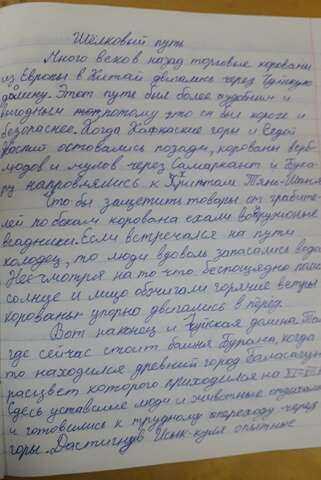 Шёлковый путь
Много веков назад торговые корованы
из Европы в Китай двигались через Чуйскую
долину. Этот путь был более удобным и
выгодным потому что он был короче и
безопаснее. Когда Кафкаские горы и Седой
Каспий оставались позади, корованы верб-
людов и мулов через Самаркант и Буха-
ру напровлялись к Тянь-Шаня
Что бы защетить товары от грабите-
лей по бокам корована ехали вооружоные
всадники. Если встречался на пути
колодец, то люди вдоволь запасались водой
Несмотря на то что беспощядно палило
солнце и лицо обжигали горячие ветры
корованы упорно двигались в перёд.
Вот наконец и Чуйская долина
где сейчас стоит башня Бурана, когда
то находился древний город Баласагун
расцвет которого приходился на
Здесь уставшие люди и животные отдыхали
и готовились к трудному опереходу через
горы. Дастигнув Исык-куля опытные